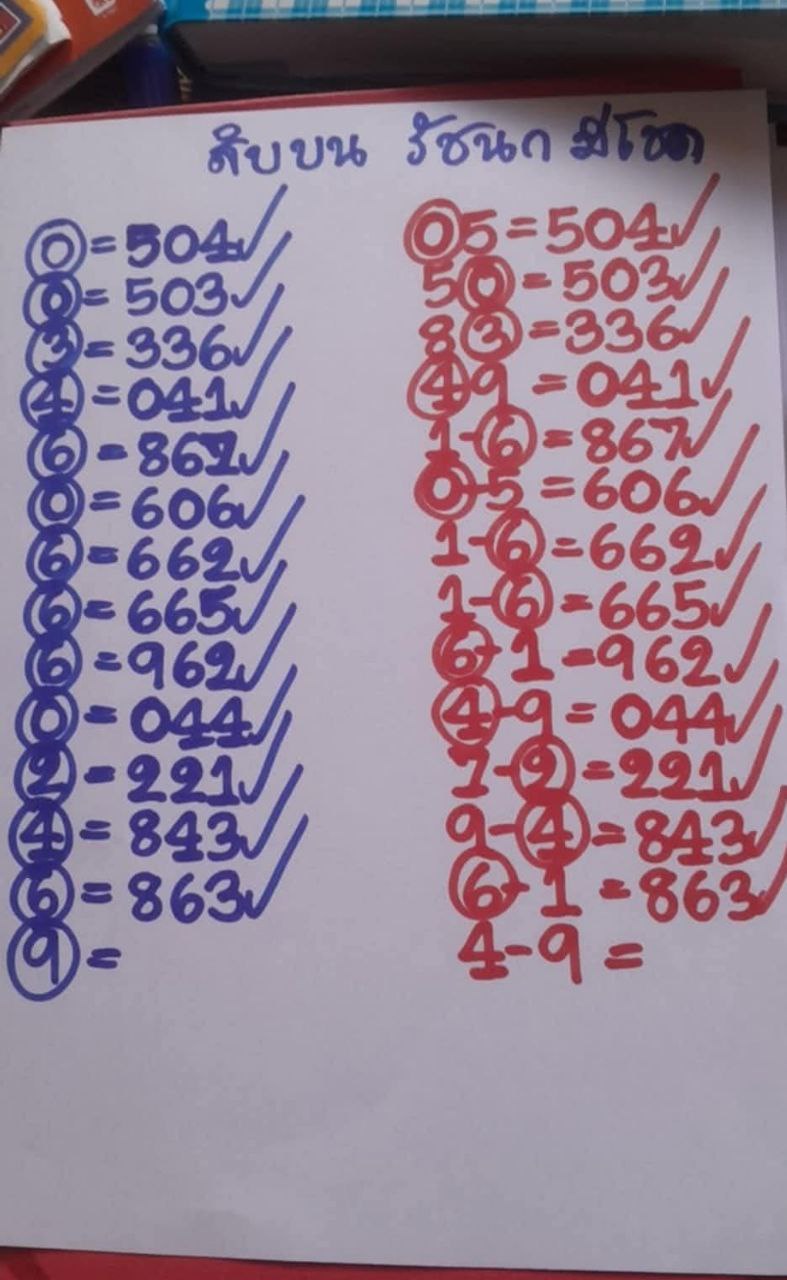 สิบบน รัชนก มีโชค
0 = 504✓ 05 = 504✓
0 = 503✓ 50 = 503✓
3 = 336✓ 83 = 336✓
4 = 041✓ 49 = 041✓
6 = 867✓ 1-6 = 867✓
0 = 606✓ 0-5 = 606✓
6 = 662✓ 1-6 = 662✓
6 = 665✓ 1-6 = 665✓
6 = 962✓ 6-1 = 962✓
0 = 044✓ 4-9 = 044✓
2 = 221✓ 7-2 = 221✓
4 = 843✓ 9-4 = 843✓
6 = 863✓ 6-1 = 863✓
9 = 4-9 =